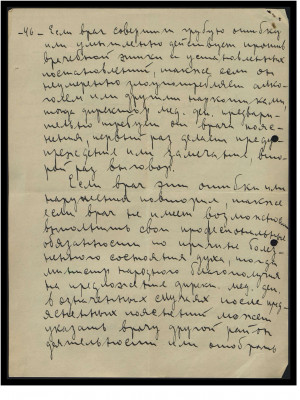 -46- Если врач совершил грубую ошибку
или умышленно действует против
врачебной этики и установленных
постановлений, также если он
неумеренно злоупотребляет алко-
голем или другими наркотиками,
тогда директор мед. деп. предвари-
тельно от врача пояс-
нения, первый раз делает преду-
преждение или замечание, вто-
рой раз выговор.
Если врач эти ошибки или
нарушения повторил, также
если врач не имеет возможности
выполнить свои профессиональные
обязанности по причине болез-
ненного состояния духа, тогда
министр народного благополучия
по предложению дирек. мед. деп.
в означенных случаях после пред-
явленных пояснений может
указать врачу другой район
деятельности или отобрать